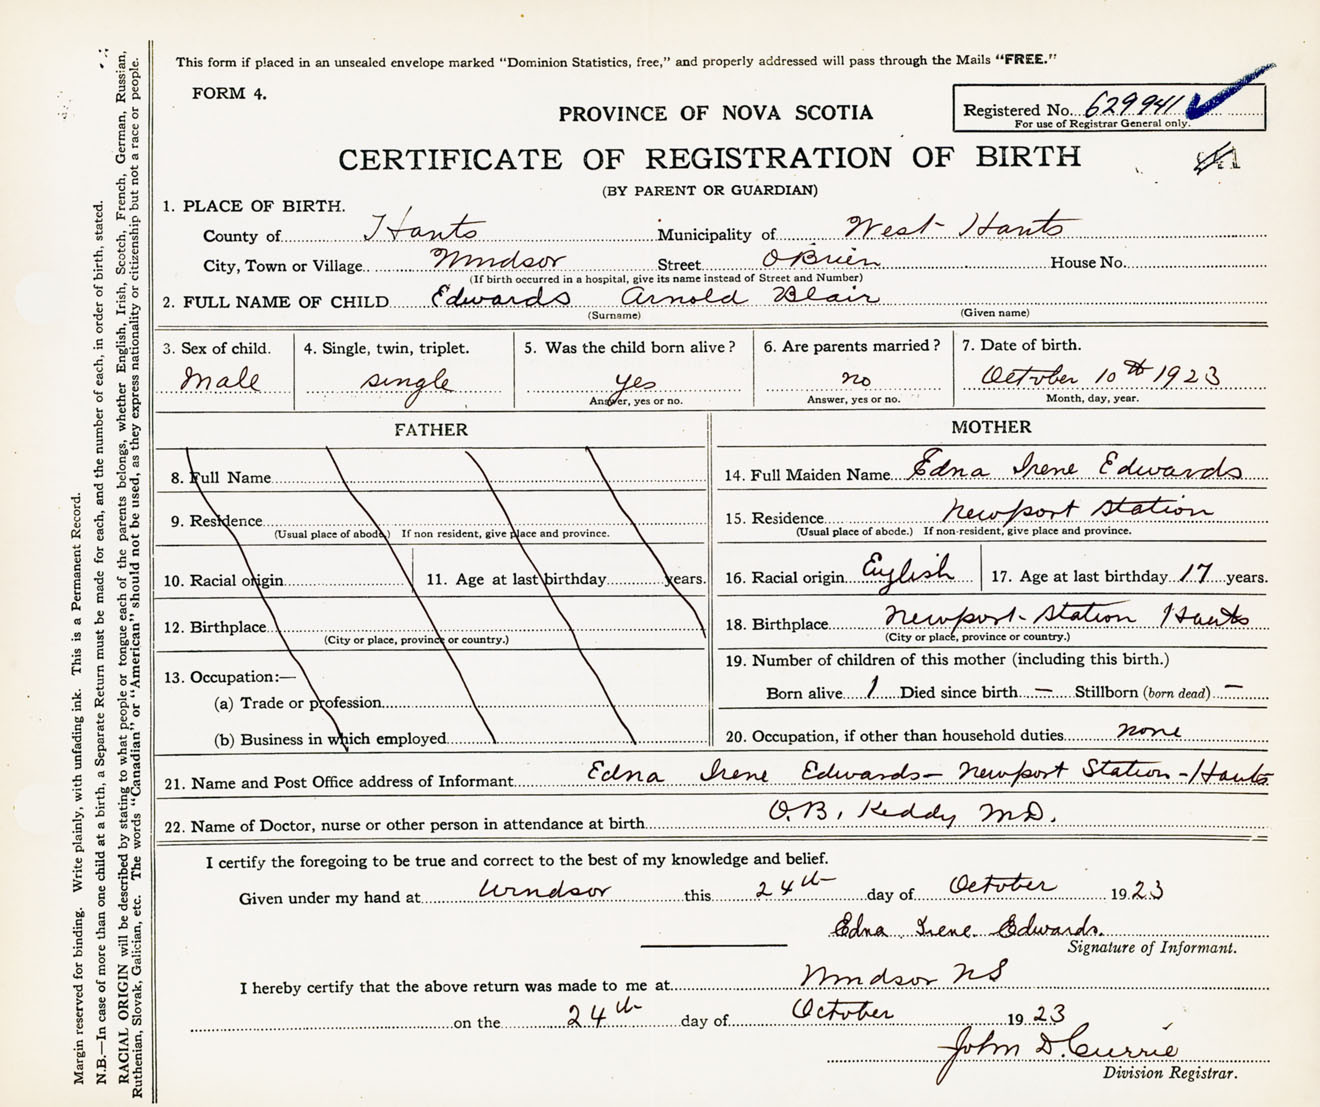 This form if placed in an unsealed envelope marked "Dominion Statistics, free," and properly addressed will pass through the Mails "FREE."
FORM 4.
PROVINCE OF NOVA SCOTIA
Registered No. 629941
For use of Registrar General only.
CERTIFICATE OF REGISTRATION OF BIRTH
(BY PARENT OR GUARDIAN)
1. PLACE OF BIRTH.
County of Hants Municipality of West Hants
City, Town or Village Windsor Street O'Brien House No.
(If birth occurred in a hospital, give its name instead of Street and Number)
2. FULL NAME OF CHILD Edwards Arnold Blair
(Surname) (Given name)
3. Sex of child. 4. Single, twin, triplet. 5. Was the child born alive? 6. Are parents married? 7. Date of birth.
Male single yes no October 10th 1923
Answer, yes or no. Answer, yes or no. Month, day, year.
FATHER
8. Full Name
9. Residence
(Usual place of abode.) If non resident, give place and province.
10. Racial origin 11. Age at last birthday years.
12. Birthplace
(City or place, province or country.)
13. Occupation:—
(a) Trade or profession
(b) Business in which employed
MOTHER
14. Full Maiden Name Edna Irene Edwards
15. Residence Newport Station
(Usual place of abode.) If non-resident, give place and province.
16. Racial origin English 17. Age at last birthday 17 years.
18. Birthplace Newport Station Hants
(City or place, province or country.)
19. Number of children of this mother (including this birth.)
Born alive 1 Died since birth — Stillborn (born dead) —
20. Occupation, if other than household duties none
21. Name and Post Office address of Informant Edna Irene Edwards - Newport Station - Hants
22. Name of Doctor, nurse or other person in attendance at birth O.B. Keddy M.D.
I certify the foregoing to be true and correct to the best of my knowledge and belief.
Given under my hand at Windsor this 24th day of October 1923
Edna Irene Edwards.
Signature of Informant.
I hereby certify that the above return was made to me at Windsor NS
on the 24th day of October 1923
John D. Currie
Division Registrar.
Margin reserved for binding. Write plainly, with unfading ink. This is a Permanent Record.
N.B.—In case of more than one child at a birth, a Separate Return must be made for each, and the number of each, in order of birth, stated.
RACIAL ORIGIN will be described by stating to what people or tongue each of the parents belongs, whether English, Irish, Scotch, French, German, Russian,
Ruthenian, Slovak, Galician, etc. The words "Canadian" or "American" should not be used, as they express nationality or citizenship but not a race or people.